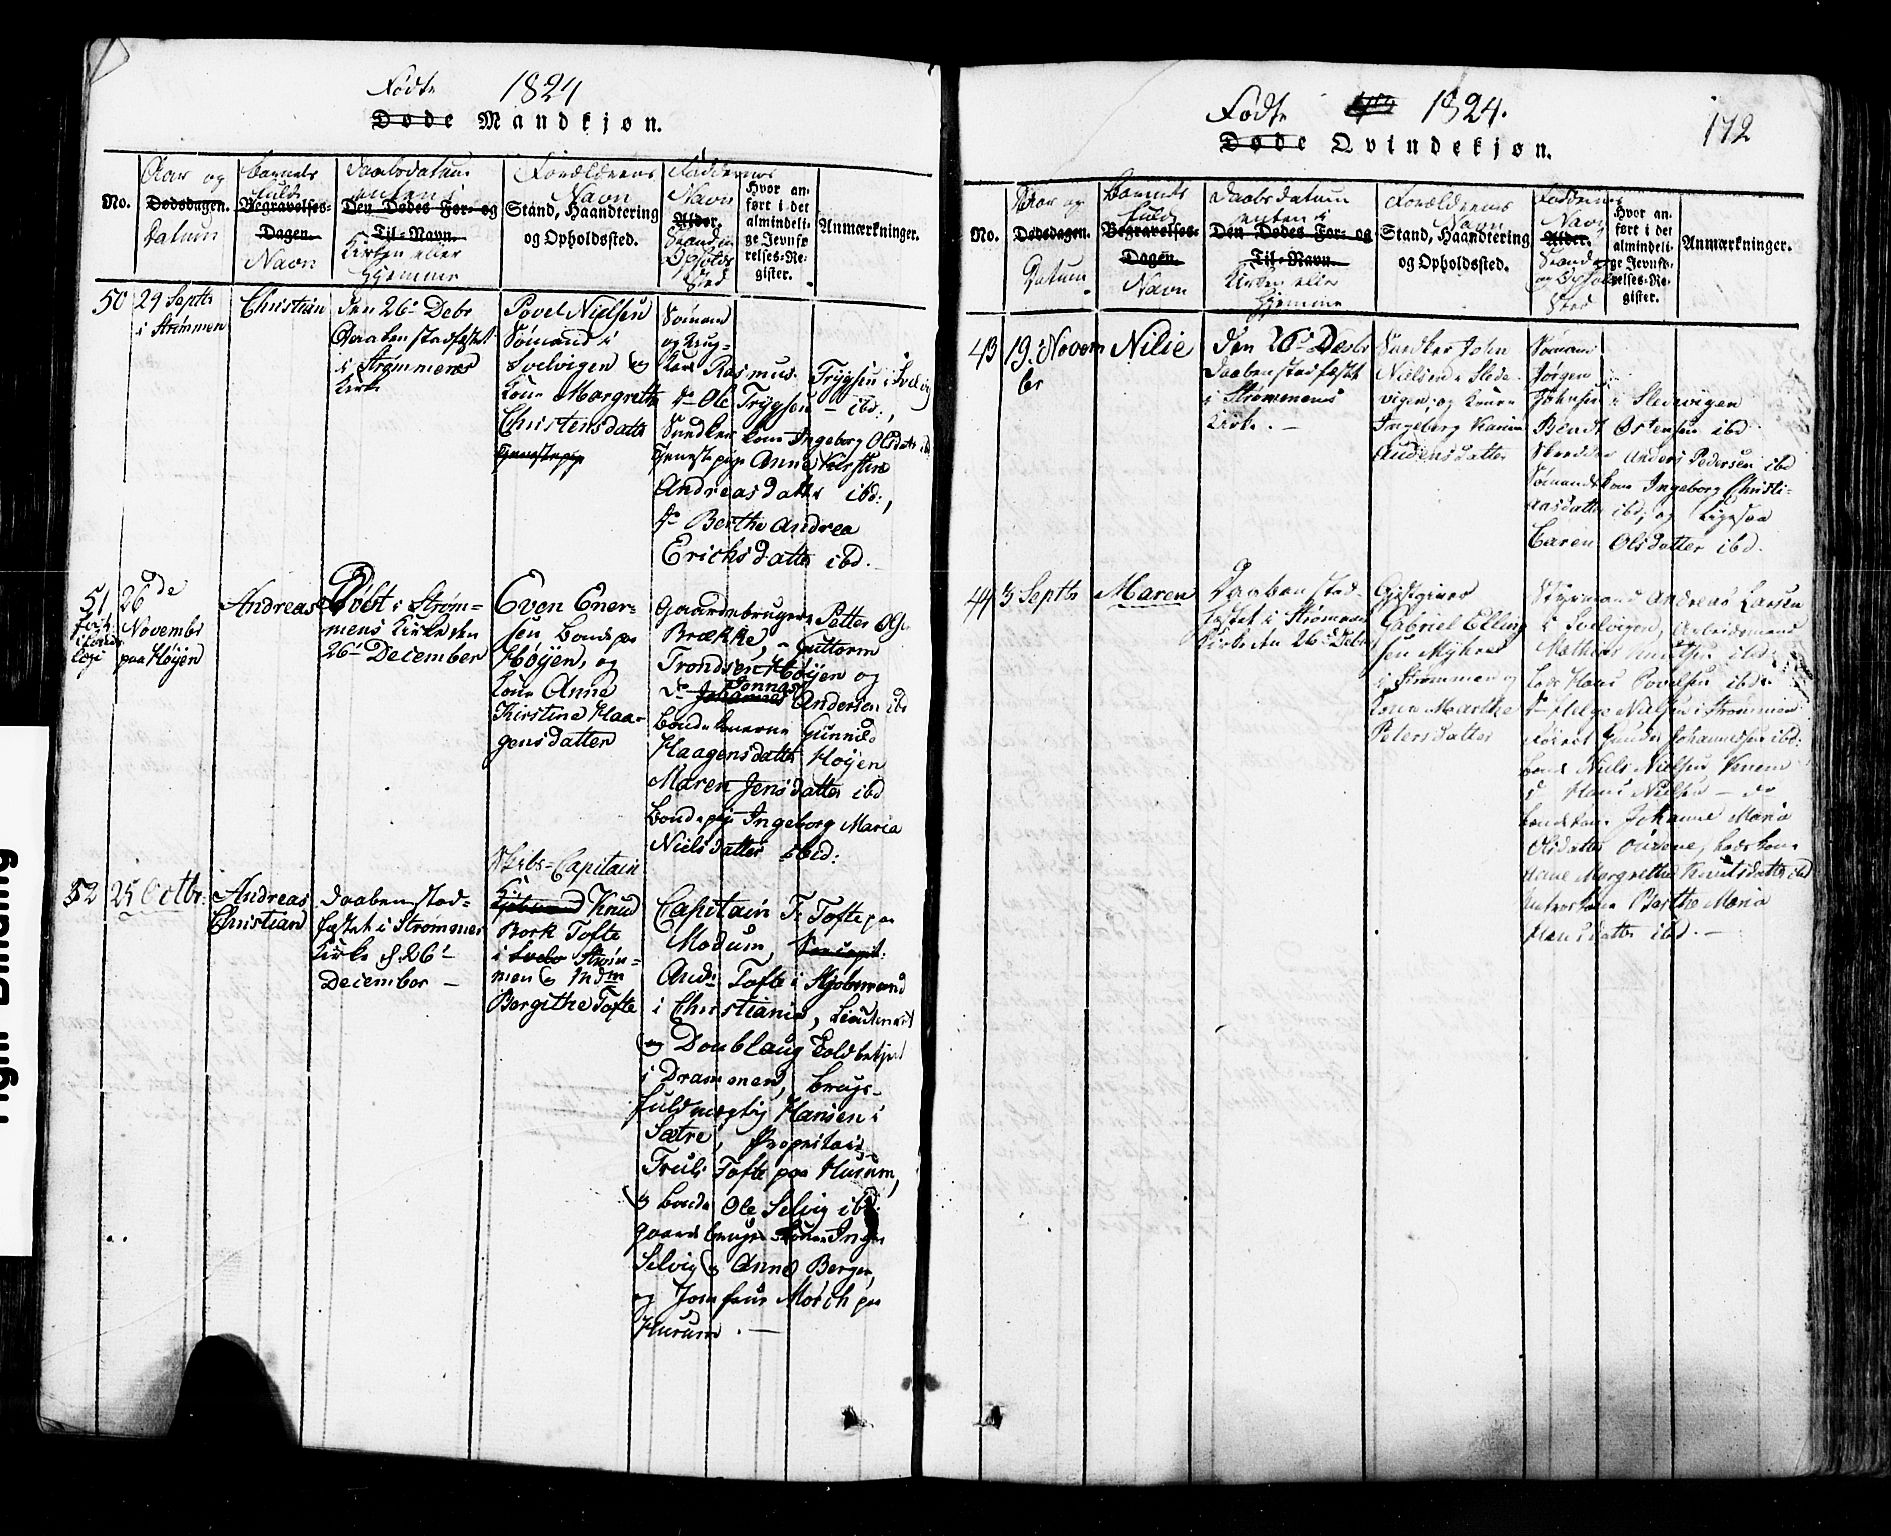 Fødte 1824
Døde Mandkjøn.
No.
Aar og
Dødsdagen.
Datum
Barnets
fulde
Begravelses-
Dagen.
Navn
Daabsdatum
enten i
Den Dødes For- og
Til-Navn.
Kirken eller
Hjemme
Forældrenes
Navn
Stand, Haandtering
og Opholdssted.
Faddernes
Navn
Alder.
Stand
Opholds
Sted
Hvor an-
ført i det
almindeli-
ge Jevnfø
relses-Re-
gister.
Anmærkninger.
50
29 Septbr
i Strømmen
Christian
den 26d Debr
Daaben stadfæstet
i Strømmens
Kirke
Povel Nielsen
Sømand i
Svelvigen og
Kone Margrethe
Christensdatter
Tjenestepige
Sømand
Rasmus Trygsen i Svelvig
do Ole Trygsen - ibd:,
Snedker kone Ingeborg Olsdatter ibd
Tjenestepige Anne Kirstine
Andreasdatter ibd:,
do Berthe Andrea
Erichsdatter ibd.
51
26de
Novembr
paa Høyen
Andreas
Døbt i Strøm-
mens Kirke den
26d December
Even Ener-
sen Bonde paa
Høyen, og
Kone Anne
Kirstine Haa-
gensdatter
Gaardebrugere Petter
Brække, Guttorm
Trondsen Høyen og
do Johannes Jonnas Andersen ibd
Bondekonerne Gunnild
Haagensdatter Høyen
Maren Jensdatter ibd
Bondepige Ingeborg Maria
Nielsdatter ibid:
52
25 Octbr:
Andreas
Christian
Daaben stad-
fæstet i Strømmens
Kirke d 26d
December -
Skibs-Capitain
Knud
Bork Tofte
i Svelv Strøm-
men og Mdm
Bergithe Tofte
Capitain F. Tofte paa
Modum,
Andr Tofte i Kjøbmand
i Christiania, Lieutenant
og Doublaug Toldbetjent
i Drammen, Brugs-
fuldmægtig Hansen i
Sætre, Proprietair
Truls Tofte paa Hurum,
og Bonde Ole Selvig ibd:
Gaardbruger Kone Inger
Selvig og Anne Berger,
og Jomfrue Mørch paa
Hurum. -
Fødte 1824.
172
Døde Qvindekjøn.
No.
Aar og
Dødsdagen.
Datum
Barnets
fulde
Begravelses-
Dagen.
Navn
Daabsdatum
enten i
Den Dødes For- og
Til-Navn.
Kirken eller
Hjemme
Forældrenes
Navn
Stand, Haandtering
og Opholdssted.
Faddernes
Navn
Alder.
Stand
og Opholds
Sted
Hvor an-
ført i det
almindeli-
ge Jevnfø-
relses-Re-
gister.
Anmærkninger.
43
19. Novem
br
Nilie
den 26d Decbr
Daaben stadfæstet
i Strømmens
Kirke. -
Snedker John
Nielsen i Slede-
vigen, og Kone
Ingeborg Karine
Audensdatter
Sømand
Jørgen
Johnsen i Sledevigen
Berndt Østensen ibd
Skredder Anders Pedersen ibd
Sømandskone Ingeborg Christi-
ansdatter ibd, og Ligesaa
Caren Olsdatter ibd.
44
3 Septbr
Maren
Daaben stad-
fæstet i Strømmens
Kirke den 26d Debr
Gjestgiver
Gabriel Elling
sen Myhre
i Strømmen og
Kone Marthe
Petersdatter
Styrmand Andreas Larsen
i Svelvigen, Arbeidsmand
Mathias Knutsen ibd:
Lods Hans Povelsen ibd:
do Helge Nielsen i Strømmen
Gunder Johannessen ibd:
Bonde Niels Nielsen Knem
d Hans Nielsen - do
Bondekone Johanne Maria
Olsdatter , Lodskone
Anne Margrethe Knutsdatter ibd
Berthe Maria
Hansdatter ibd. -